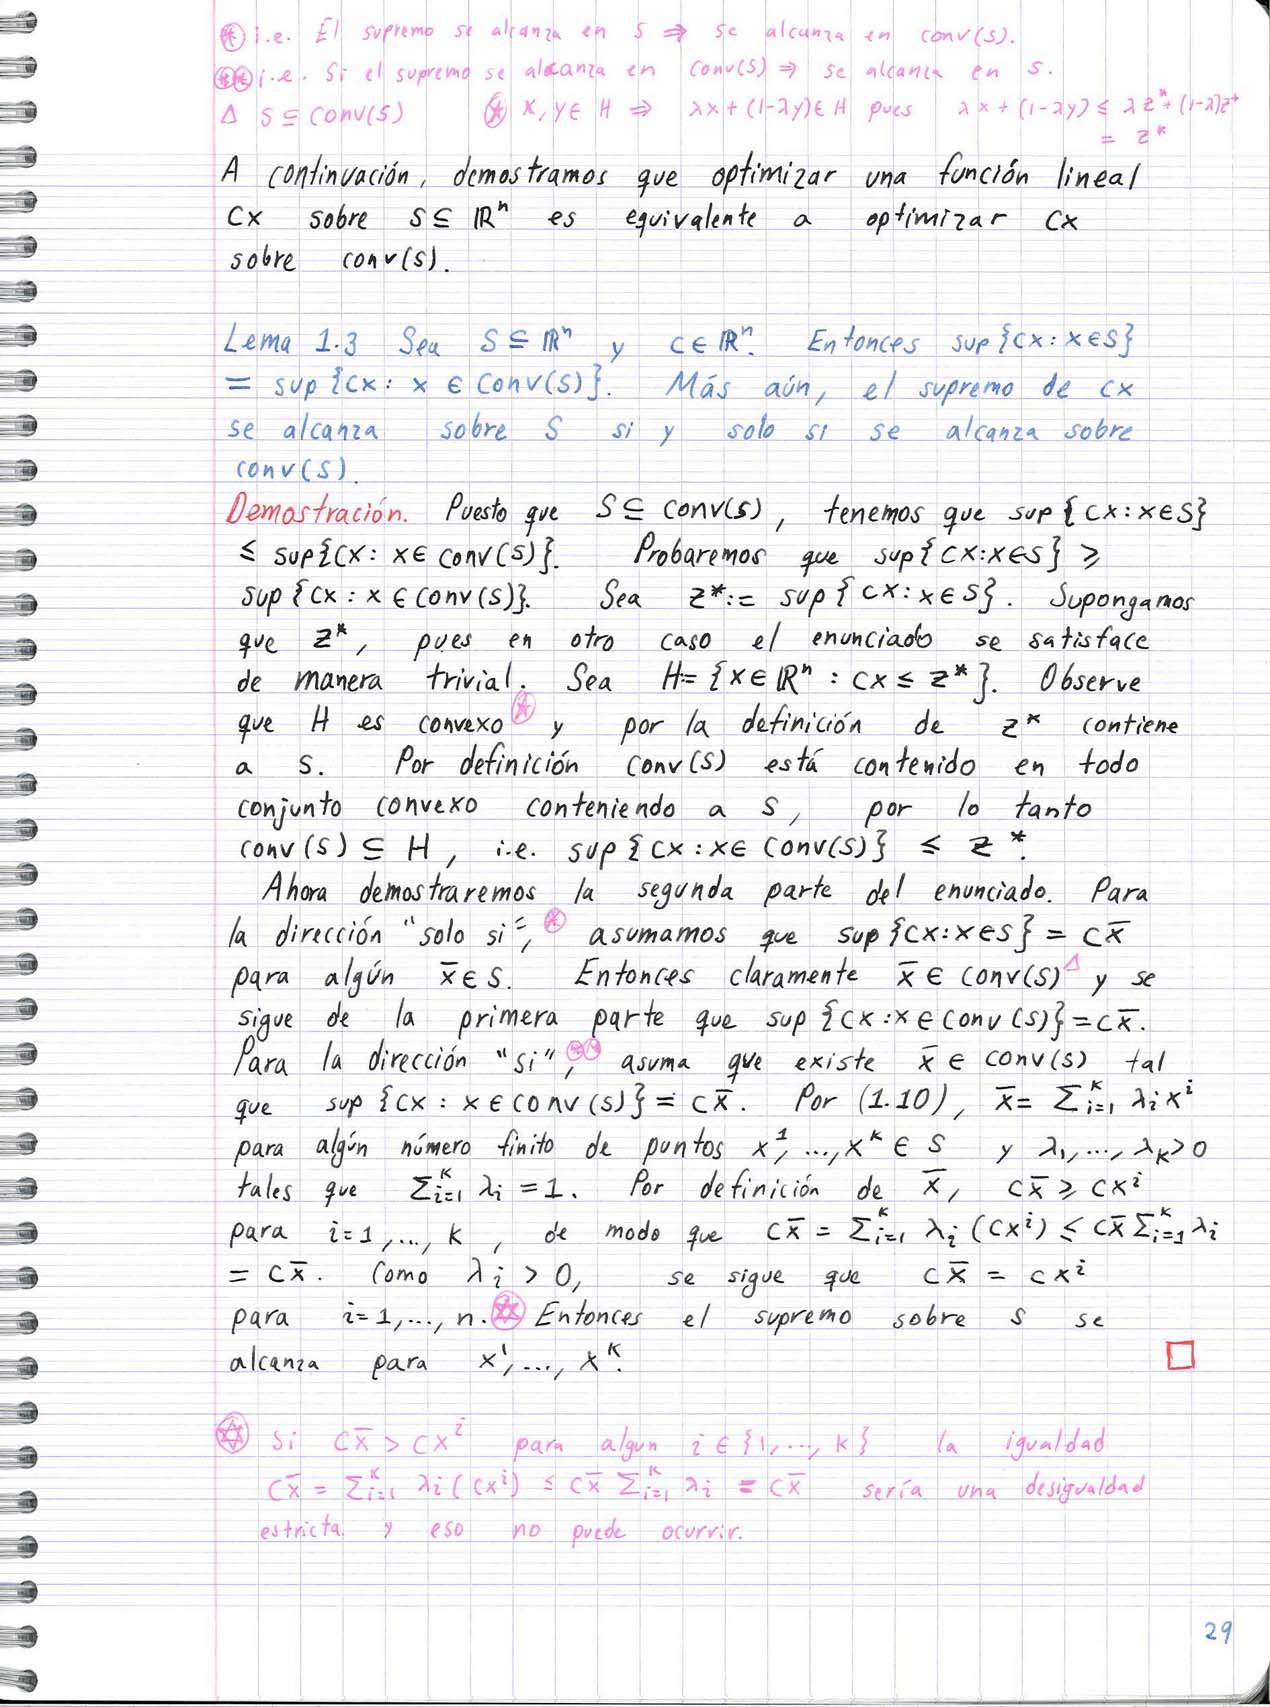 ⊛ i.e. El supremo se alcanza en S ⇒ se alcanza en conv(S).
⊛⊛ i.e. Si el supremo se alcanza en conv(S) ⇒ se alcanza en S.
Δ S ⊆ conv(S) ⊛ x, y ∈ H ⇒ λx + (1-λy) ∈ H pues λx + (1-λy) ≤ λz* + (1-λ)z*
= z*
A continuación, demostramos que optimizar una función lineal
cx sobre S ⊆ ℝⁿ es equivalente a optimizar cx
sobre conv(S).
Lema 1.3 Sea S ⊆ ℝⁿ y c ∈ ℝⁿ. Entonces sup{cx : x ∈ S}
= sup{cx : x ∈ conv(S)}. Más aún, el supremo de cx
se alcanza sobre S si y solo si se alcanza sobre
conv(S).
Demostración. Puesto que S ⊆ conv(S), tenemos que sup{cx : x ∈ S}
≤ sup{cx : x ∈ conv(S)}. Probaremos que sup{cx : x ∈ S} ≥
sup{cx : x ∈ conv(S)}. Sea z* := sup{cx : x ∈ S}. Supongamos
que z*, pues en otro caso el enunciado se satisface
de manera trivial. Sea H = {x ∈ ℝⁿ : cx ≤ z*}. Observe
que H es convexo ⊛ y por la definición de z* contiene
a S. Por definición conv(S) está contenido en todo
conjunto convexo conteniendo a S, por lo tanto
conv(S) ⊆ H, i.e. sup{cx : x ∈ conv(S)} ≤ z*.
Ahora demostraremos la segunda parte del enunciado. Para
la dirección "solo si", ⊛ asumamos que sup{cx : x ∈ S} = cx̄
para algún x̄ ∈ S. Entonces claramente x̄ ∈ conv(S) Δ y se
sigue de la primera parte que sup{cx : x ∈ conv(S)} = cx̄.
Para la dirección "si", ⊛⊛ asuma que existe x̄ ∈ conv(S) tal
que sup{cx : x ∈ conv(S)} = cx̄. Por (1.10), x̄ = Σᵢ₌₁ᵏ λᵢxⁱ
para algún número finito de puntos x¹, ..., xᵏ ∈ S y λ₁, ..., λₖ > 0
tales que Σᵢ₌₁ᵏ λᵢ = 1. Por definición de x̄, cx̄ ≥ cxⁱ
para i = 1, ..., k, de modo que cx̄ = Σᵢ₌₁ᵏ λᵢ(cxⁱ) ≤ cx̄ Σᵢ₌₁ᵏ λᵢ
= cx̄. Como λᵢ > 0, se sigue que cx̄ = cxⁱ
para i = 1, ..., n. ✡ Entonces el supremo sobre S se
alcanza para x¹, ..., xᵏ. □
✡ Si cx̄ > cxⁱ para algun i ∈ {1, ..., k} la igualdad
cx̄ = Σᵢ₌₁ᵏ λᵢ(cxⁱ) ≤ cx̄ Σᵢ₌₁ᵏ λᵢ = cx̄ sería una desigualdad
estricta y eso no puede ocurrir.
29